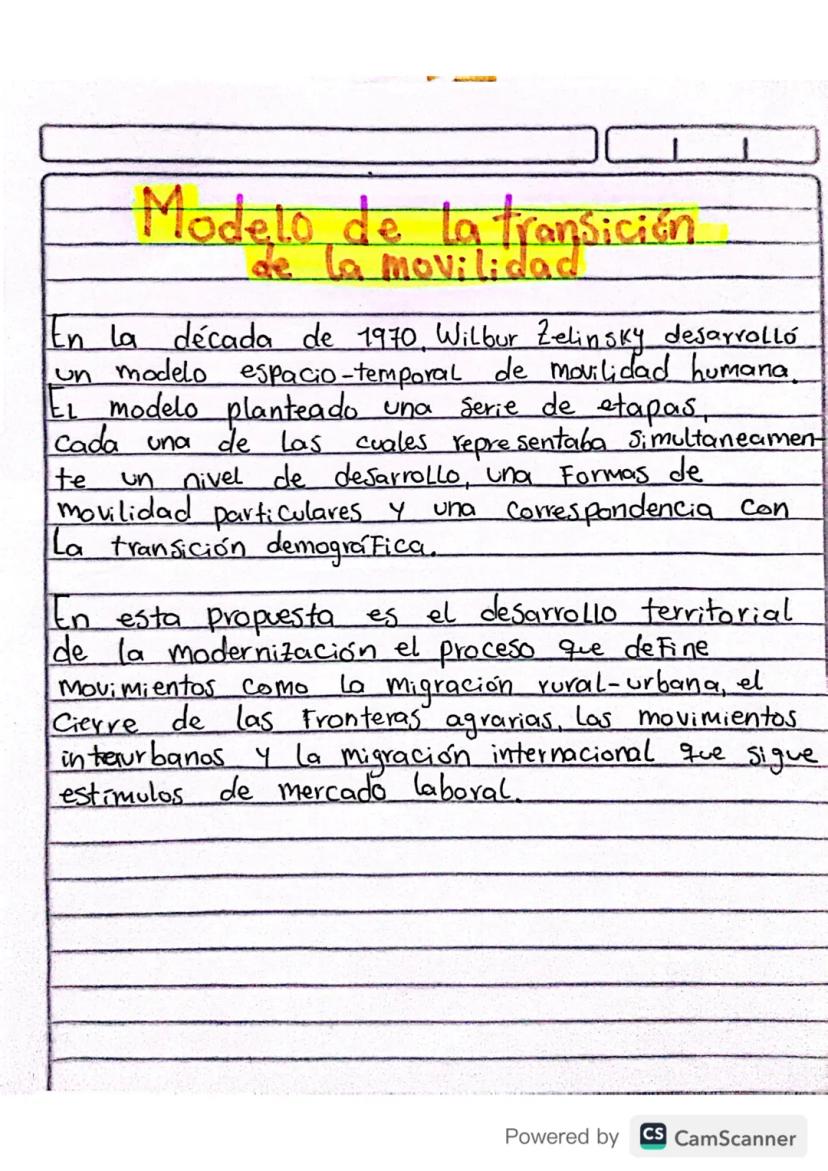 Modelo de la transición
de la movilidad
En la década de 1970, Wilbur Zelinsky desarrolló
un modelo espacio-temporal de movilidad humana.
El modelo planteado una serie de etapas,
cada una de las cuales representaba simultaneamen-
te un nivel de desarrollo, una formas de
movilidad particulares y una correspondencia con
la transición demográfica.
En esta propuesta es el desarrollo territorial
de la modernización el proceso que define
movimientos como la migración rural-urbana, el
cierre de las fronteras agrarias, los movimientos
interurbanos y la migración internacional que sigue
estímulos de mercado laboral.
Powered by CS CamScanner